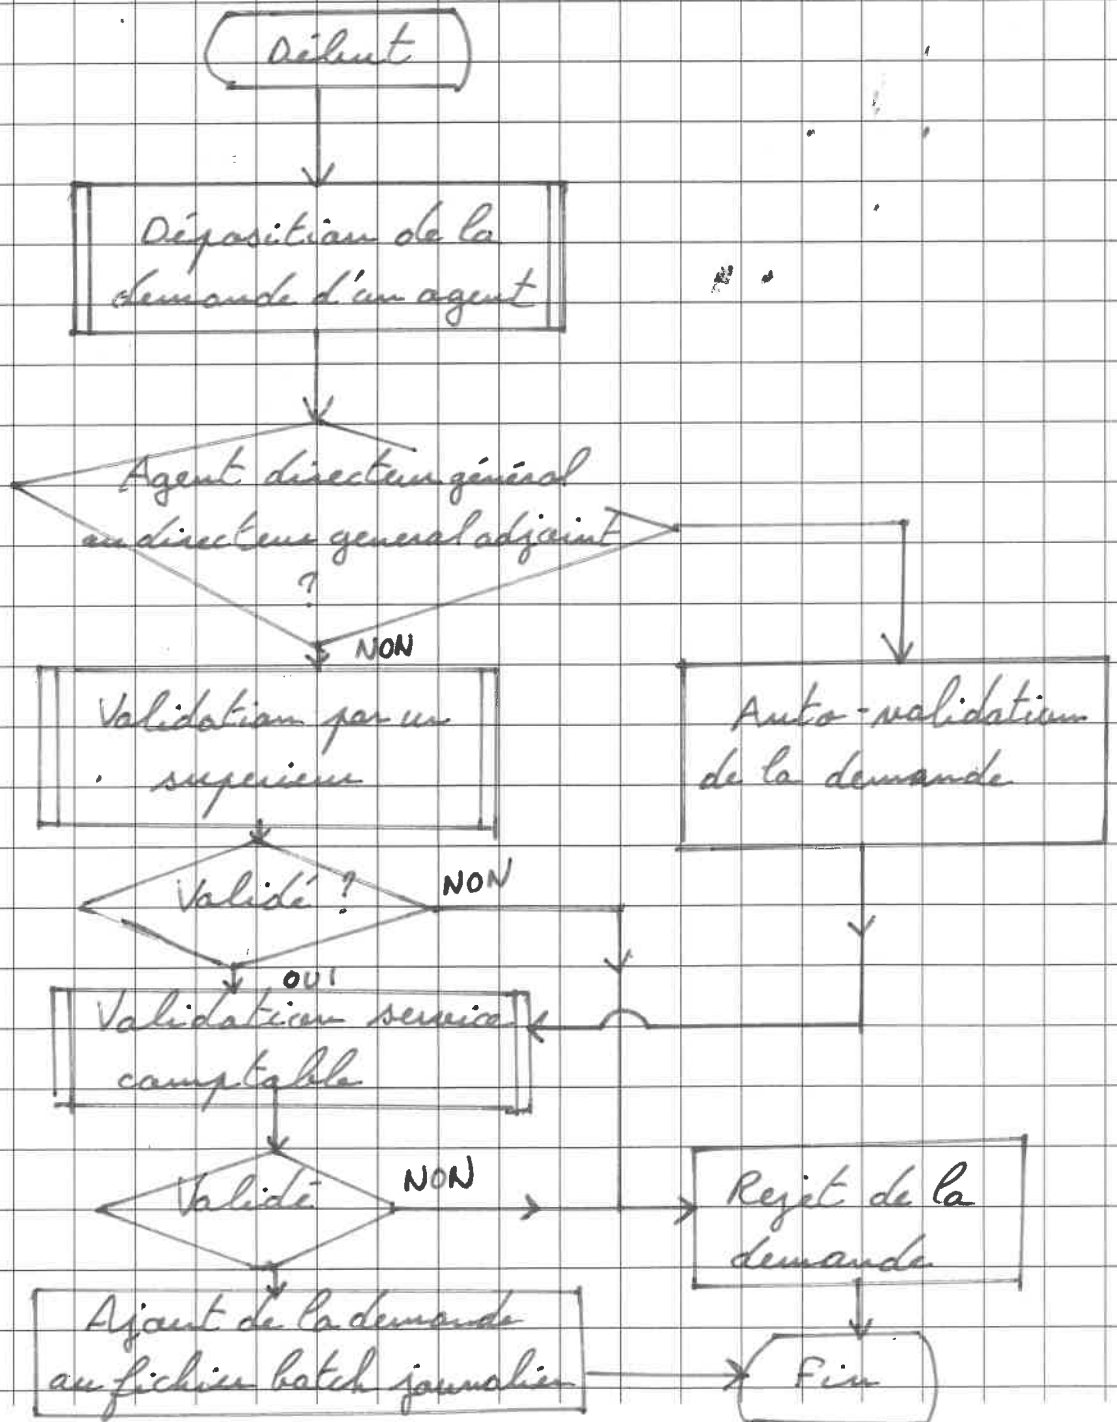 Début
Déposition de la
demande d'un agent
Agent directeur général
ou directeur general adjoint
?
NON
Validation par un
superieur
Auto-validation
de la demande
Validé ?
NON
OUI
Validation service
comptable
Validé
NON
Rejet de la
demande
Ajout de la demande
au fichier batch journalier
Fin